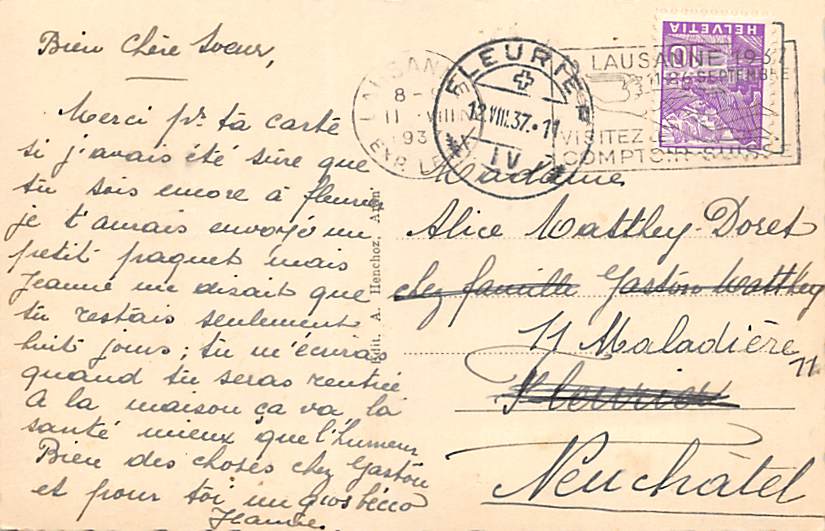 Bien Chère Soeur,
Merci pr ta carte
si j'avais été sûre que
tu sois encore à fleurier
je t'aurais envoyé un
petit paquet mais
Jeanne me disait que
tu restais seulement
huit jours; tu m'écriras
quand tu seras rentrée
à la maison ça va la
santé mieux que l'humeur
Bien des choses chez Gaston
et pour toi un gros bécco
Jeanne.
Edit. A. Henchoz,
LAUSANNE
8-
11 VIII
193
EXP. LE
FLEURIER
12.VIII.37.-11
IV
LAUSANNE 1937
11-26 SEPTEMBRE
VISITEZ LE
COMPTOIR SUISSE
HELVETIA
10
Madame
Alice Matthey-Doret
chez famille Gaston Matthey
11 Maladière 11
Fleurier
Neuchâtel